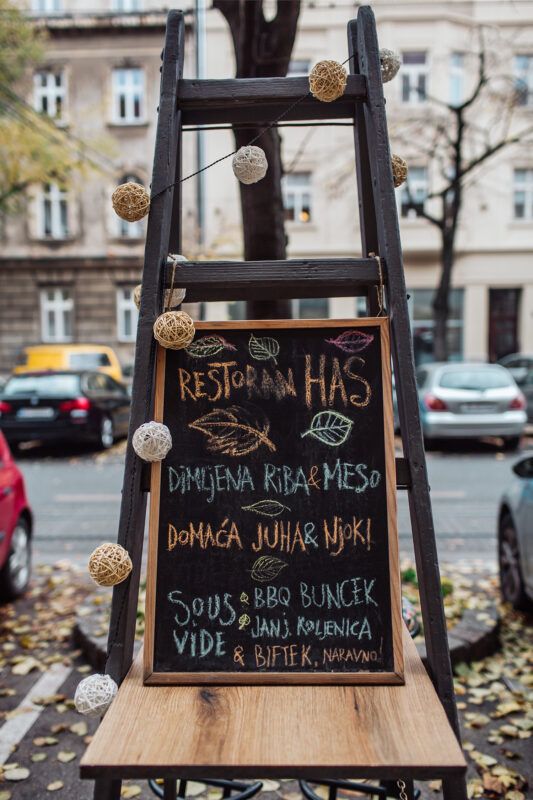 RESTORAN HAS
DIMLJENA RIBA & MESO
DOMAĆA JUHA & NJOKI
SOUS VIDE
& BBQ BUNCEK
& JANJ. KOLJENICA
& BIFTEK, NARAVNO!